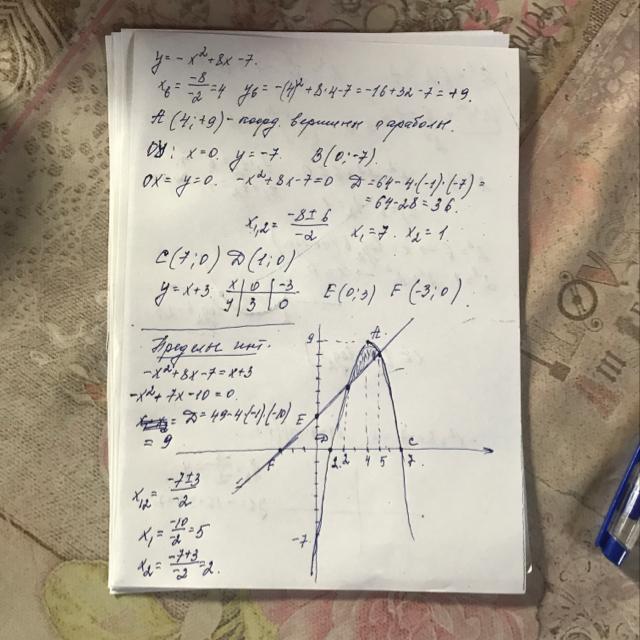 y = -x²+8x-7.
x в = -8/-2 = 4 y в = -(4)²+8·4-7=-16+32-7=+9.
A (4;+9) - коорд. вершины параболы.
OY: x=0. y=-7. B(0;-7).
OX = y=0. -x²+8x-7=0 D=64-4·(-1)·(-7)=
=64-28=36.
x1,2 = -8±6/-2 x1=7. x2=1.
C(7;0) D(1;0)
y=x+3. x | 0 | -3
y | 3 | 0
E(0;3) F(-3;0)
Пределы инт.
-x²+8x-7=x+3
-x²+7x-10=0.
= D=49-4·(-1)·(-10)
= 9
x1,2 = -7±3/-2
x1 = -10/2 = 5
x2 = -7+3/-2 = 2.
9
A
E
D
C
F
1 2 4 5 7
-7